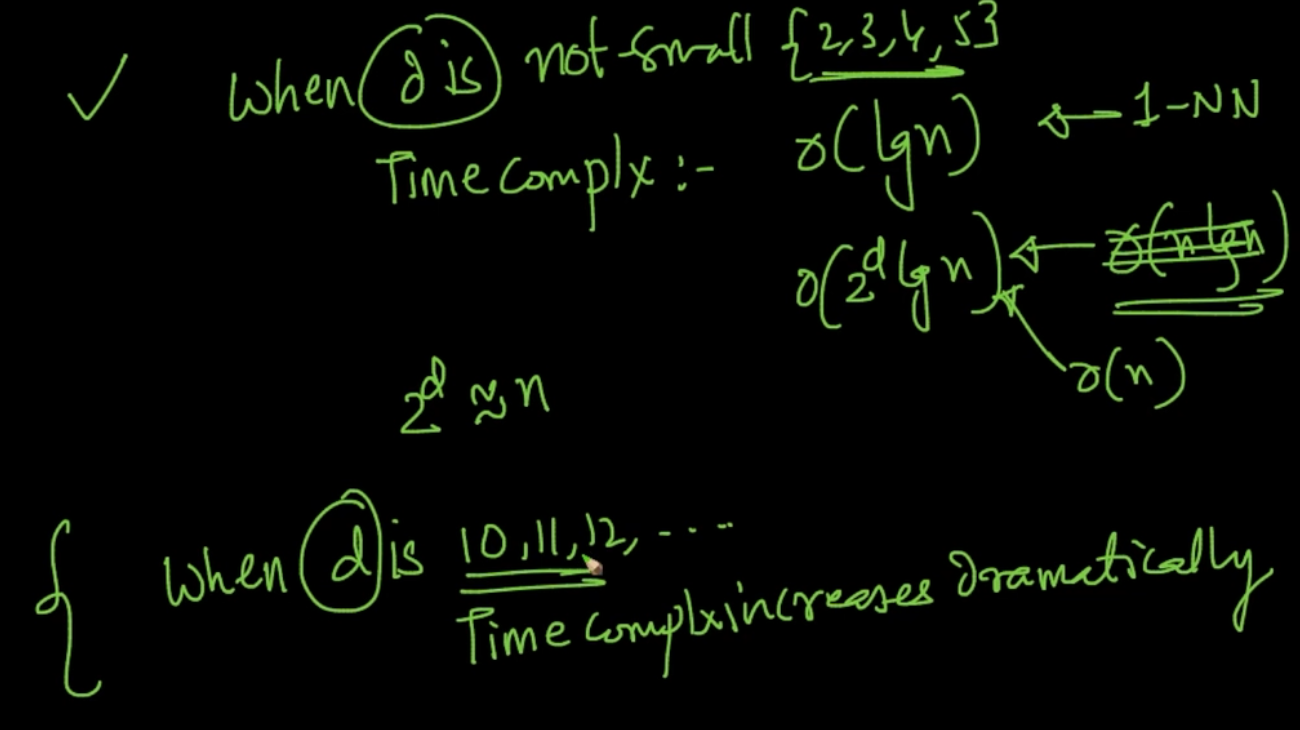 ✓ When d is not small {2,3,4,5}
Time complx :- O(lgn) ← 1-NN
O(2^d lg n) ← O(n lgn)
O(n)
2^d ≈ n
{ When d is 10,11,12, ...
Time complx increases dramatically